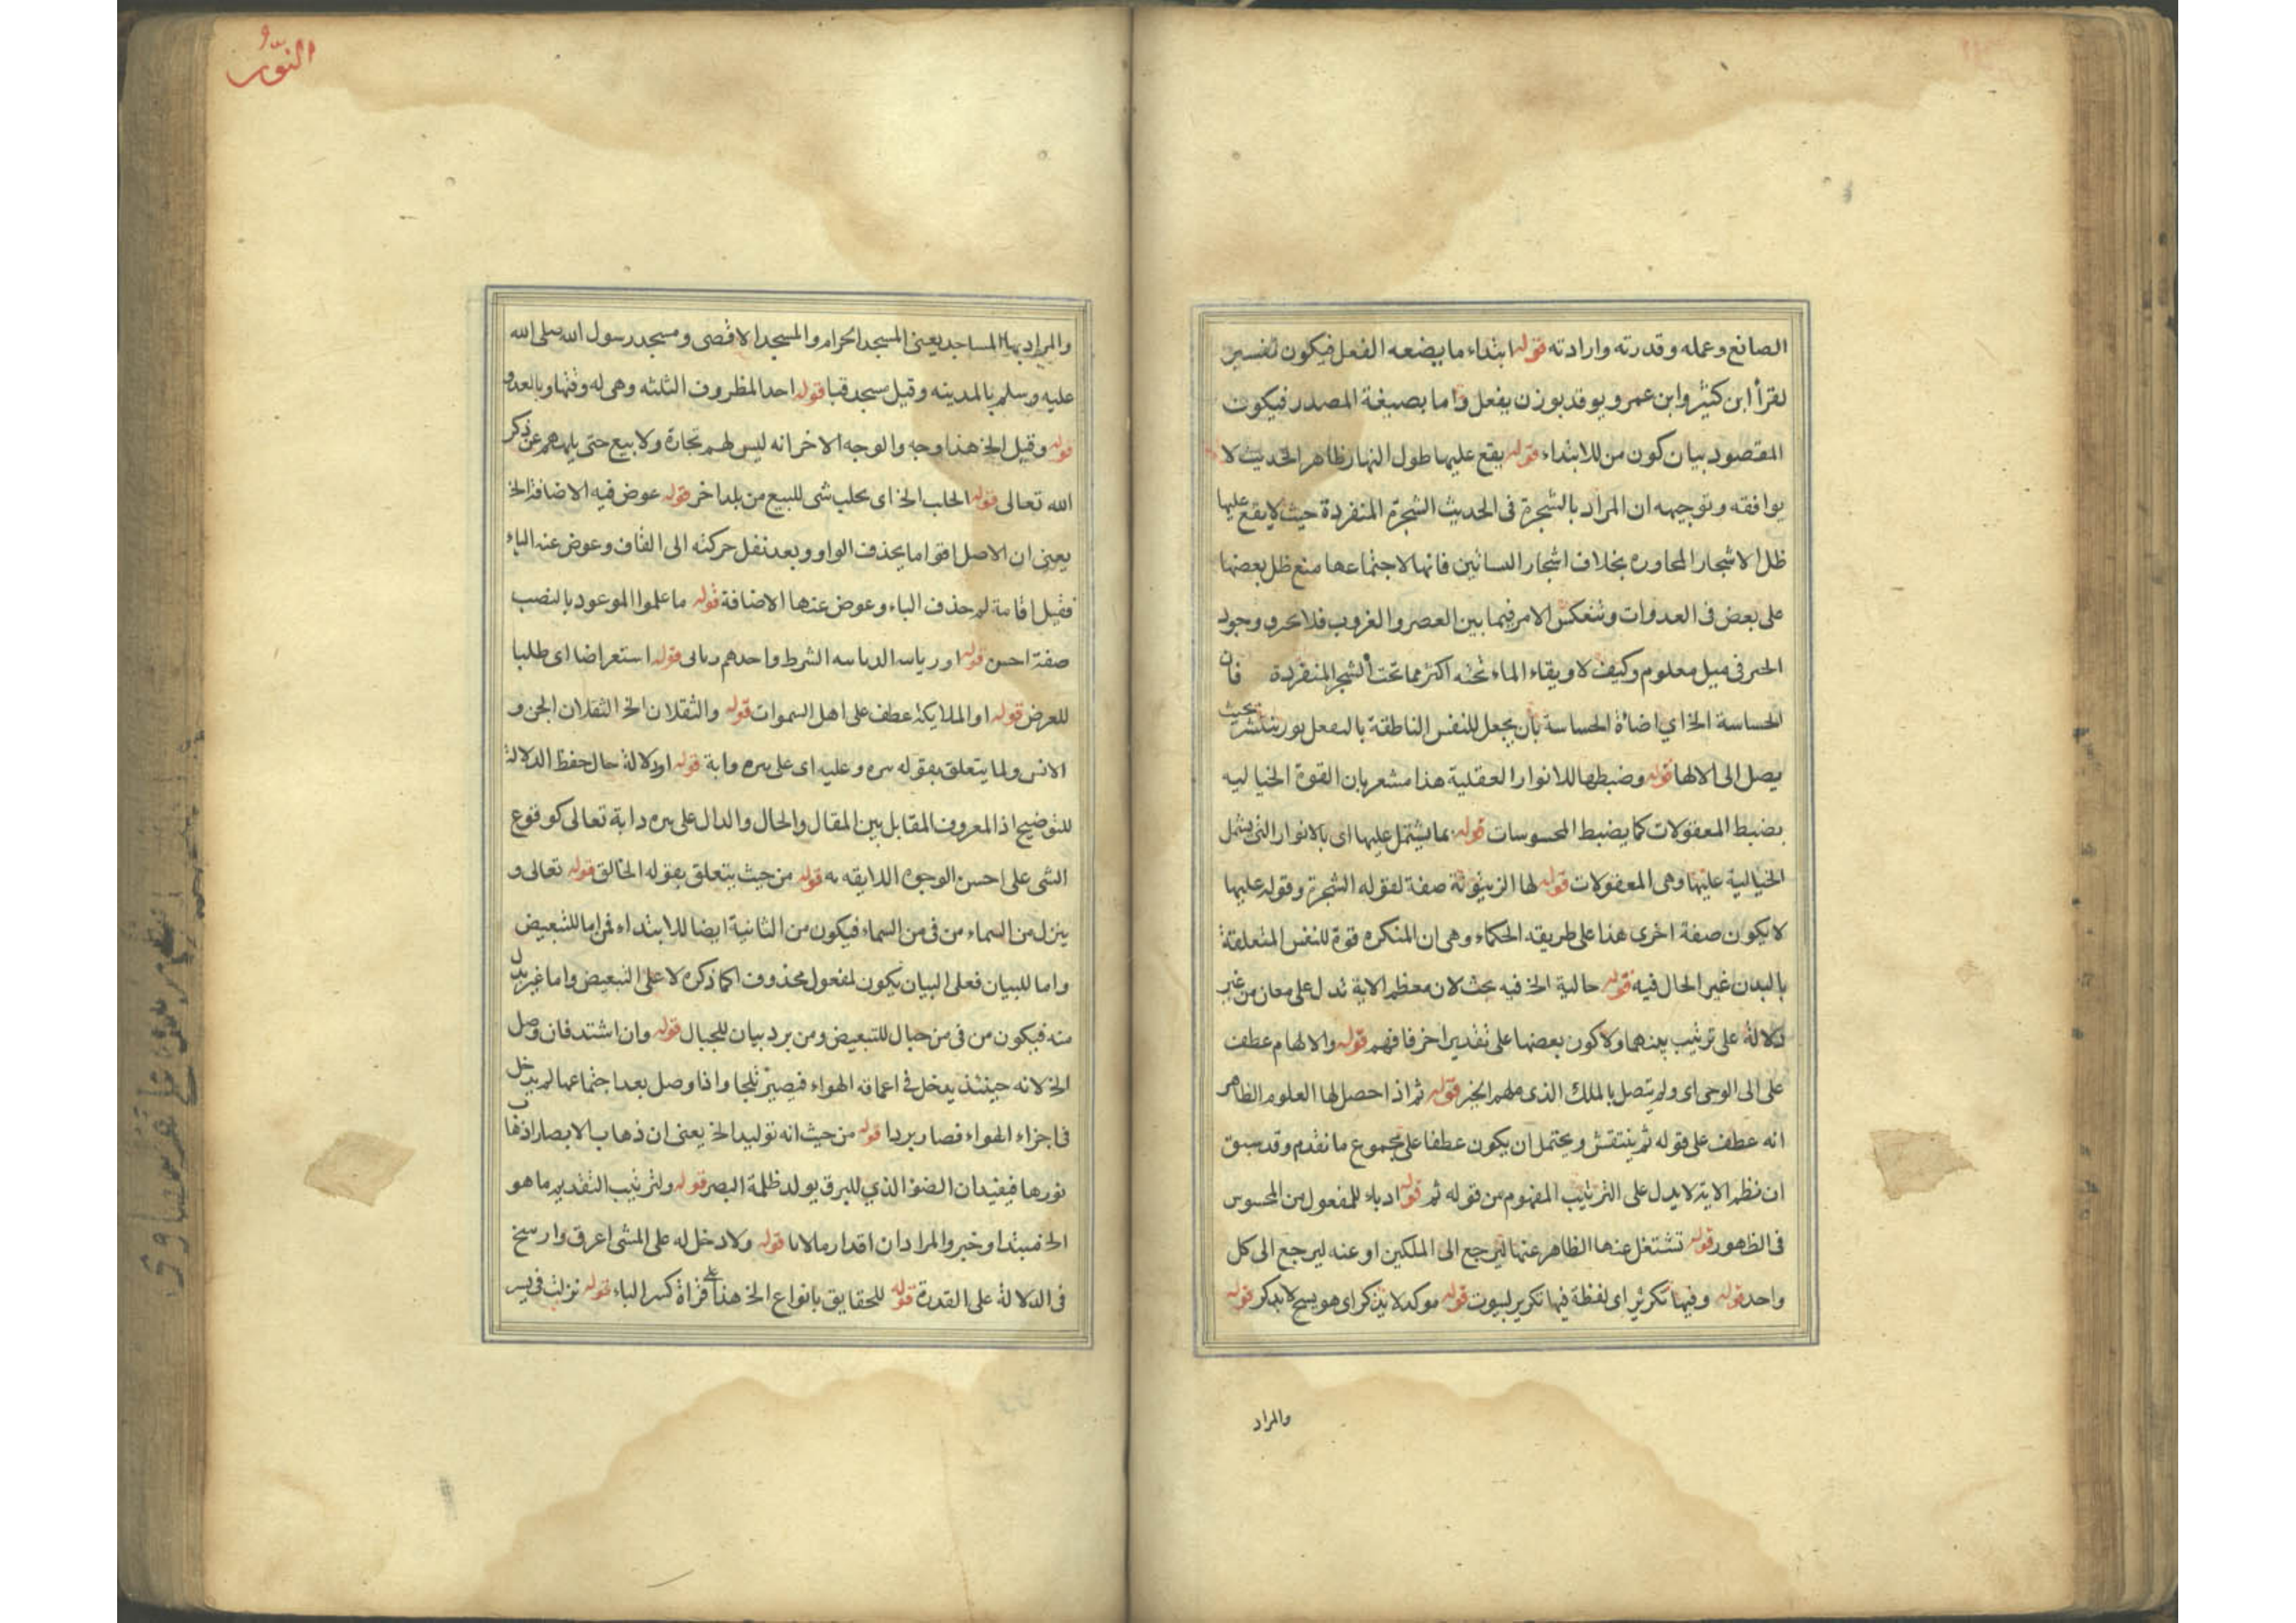 الصانع وعمله وقدرته وارادته قوله ابتداء ما يضعه الفعل فيكون تفسير
لقرأ ابن كثير وابن عمرو يوقد بوزن يفعل واما بصيغة المصدر فيكون
المقصود بيان كون من للابتداء قوله يقع عليها طول النهار ظاهر الحديث لا
يوافقه وتوجيهه ان المراد بالشجرة فى الحديث الشجرة المنفردة حيث لا يقع عليها
ظل الاشجار المجاوره بخلاف اشجار البساتين فانها لاجتماعها منع ظل بعضها
على بعض فى العدوات وتنعكس الامر فيما بين العصر والغروب فلا وجود
الحر فى ميل معلوم وكيف لا وبقاء الماء تحته اكثر مما تحت الشجر المنفردة فان
الحساسة الخ اي اضاءة الحساسة بأن يجعل للنفس الناطقة بالفعل نور ينتشر بحيث
يصل الى الالها قوله وضبطها للانوار العقلية هذا مشعر بان القوة الخياليه
بضبط المعقولات كما يضبط المحسوسات قوله بما يشتمل عليها اى بالانوار التى يشتمل
الخيالية عليها وهى المعقولات قوله لها الزيتونة صفة لقوله الشجرة وقوله عليها
لا يكون صفة اخرى هذا على طريقه الحكماء وهى ان المنكره قوة للنفس المتعلقة
بالبدن غير الحال فيه قوله حالية الخ فيه بحث لان معظم الاية تدل على معان من غير
دلالة على ترتيب بعضها ولا كون بعضها على تقدير اخر فافهم قوله والالهام عطف
على الى الوحى اى ولم يتصل بالملك الذى ملهم الخير قوله ثم اذا حصل لها العلوم الظاهر
انه عطف على قوله ثم ينتقش ويحتمل ان يكون عطفا على مجموع ما تقدم وقد سبق
ان نظم الاية لا يدل على الترتيب المفهوم من قوله ثم قوله ادباء للمفعول من المحسوس
فى الظهور قوله تشتغل عنها الظاهر عنها ليرجع الى الملكين او عنه ليرجع الى كل
واحد قوله وفيها تكرير اى لفظة فيها تكرير لبيوت قوله موكد لا يذكر اى هو يسبح لا يذكر قوله
والمراد
النور
والمراد بها المساجد يعنى المسجد الحرام والمسجد الاقصى ومسجد رسول الله صلى الله
عليه وسلم بالمدينه وقيل مسجد قبا قوله احد المظروف الثلثه وهى له وفيها وبالعدو
قوله وقيل الخ هذا وجه والوجه الاخر انه ليس لهم تجارة ولا بيع حتى يلههم عن ذكر
الله تعالى قوله الجلب الخ اى يجلب شى للبيع من بلد اخر قوله عوض فيه الاضافة الخ
يعنى ان الاصل اقواما بحذف الواو وبعد نقل حركته الى القاف وعوض عنه الباء
فقيل اقامة لم حذف الباء وعوض عنها الاضافة قوله ما عملوا الموعود بالنصب
صفة احسن قوله او رياسه الشرط واحدهم قوله استعراضا اى طلبا
للعرض قوله او الملايكة عطف على اهل السموات قوله والثقلان الخ الثقلان الجن و
الانس ولما يتعلق بقوله وعليه اى على قوله او دلالة حال حفظ الدلالة
للتوضيح اذ المعروف المقابل بين المقال والحال والدال على تعالى كوقوع
الشى على احسن الوجوه اللايقه به قوله من حيث يتعلق بقوله الخالق قوله تعالى و
ينزل من السماء من فى من السماء فيكون من الثانية ايضا للابتداء فمن اما للتبعيض
واما للبيان فعلى البيان يكون لمفعول محذوف كما ذكره لا على التبعيض واما غير بدل
منه فيكون من فى من جبال للتبعيض ومن برد بيان للجبال قوله وان اشتد فان وصل
الخ لانه حينئذ يدخل فى اعماقه الهواء فيصير ثلجا واذا وصل بعد اجتماعها لم يدخل
فى اجزاء الهواء فصار بردا قوله من حيث انه توليد الخ يعنى ان ذهاب الابصار اذهاب
نورها فيفيد ان الضوء الذي للبرق يولد ظلمة البصر قوله ولترتيب التقديم ما هو
الخ مبتدا وخبر والمراد ان اقدار قوله ولا دخل له على المشى اعرق وارسخ
فى الدلالة على القدرة قوله للحقايق بانواع الخ هذا على قراة كسر الياء قوله نزلت فى بسر